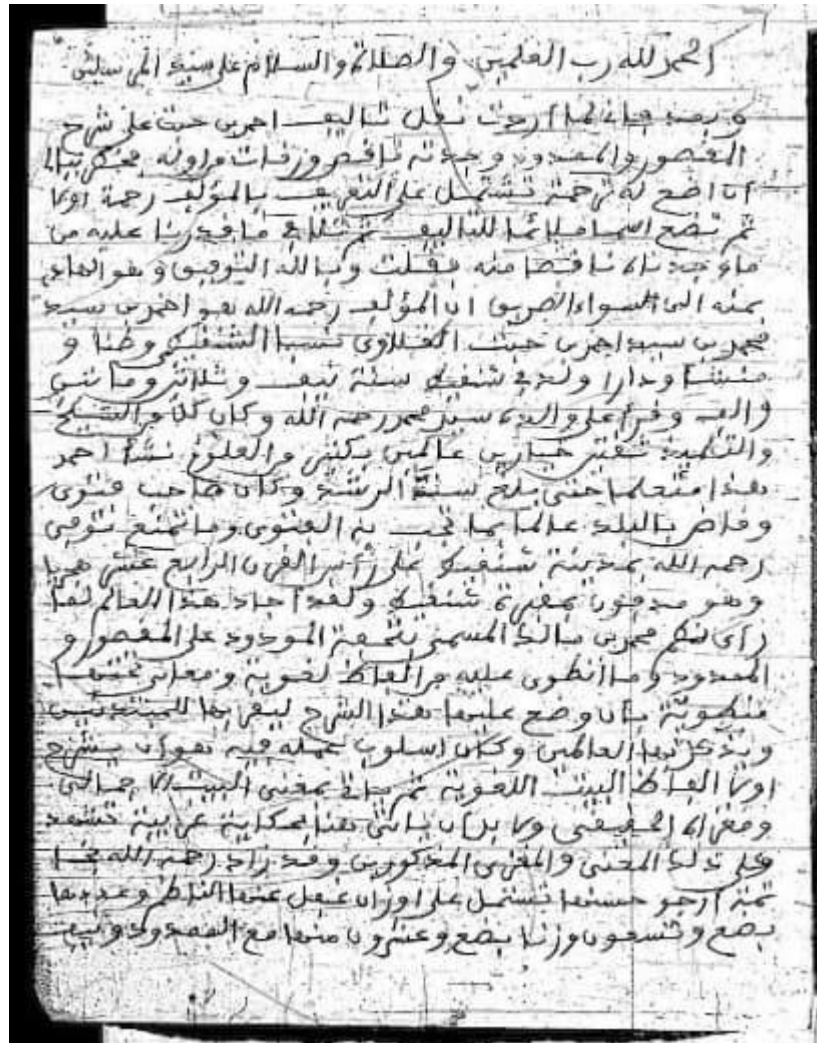 الحمد لله رب العلمين والصلاة والسلام على سيد المرسلين
وبعد فإني لما أردت نقل تأليف احمد بن حبت على شرح
المقصور والممدود وجدته ناقص ورقات من اوله فخطر ببالي
أن اضع له ترجمة تشتمل على التعريف بالمؤلف رحمة اولا
ثم نضع اسما ملائما للتأليف ثم ما قدرنا عليه من
ما وجدناه ناقصا منه فقلت وبالله التوفيق وهو الهادي
بمنه الى السواء الطريق ان المؤلف رحمه الله هو احمد بن سيد
محمد بن سيد احمد بن حبت الغلاوي نسبا الشنقيطي وطنا و
منشأ ودارا ولد في شنقيط سنة نيف وثلاثين ومائتين
والف وقرأ على والده سيد محمد رحمه الله وكان كلا من الشيخ
والتلميذ عالمين من العلوم نشأ احمد
هذا متعلما حتى بلغ سن الرشد وكان صاحب فتوى
وقاض بالبلد عالما بما تجب به الفتوى وما تمنع توفي
رحمه الله بمدينة شنقيط على رأس القرن الرابع عشر هجريا
وهو مدفون بمقبرة شنقيط ولقد أجاد هذا العالم لما
رأى نظم محمد بن مالك المسمى بتحفة المودود على المقصور و
الممدود وما انطوى عليه من الفاظ لغوية ومعاني
منطوية بأن وضع عليها هذا الشرح ليقربها للمبتدئين
ويذكر بها العالمين وكان اسلوب عمله فيه هو ان يشرح
اولا الفاظ البيت اللغوية ثم يأتي بمعنى البيت الاجمالي
ومغزاه الحقيقي ولا بد أن يأتي هنا بحكاية عربية تشهد
على ذلك المعنى والمغزى المذكورين وقد زاد رحمه الله
تمة أرجو حسنها تشتمل على اوزان غفل عنها الناظم وعددها
بضع وتسعون وزنا بضع وعشرون منها مع الممدود وبيت